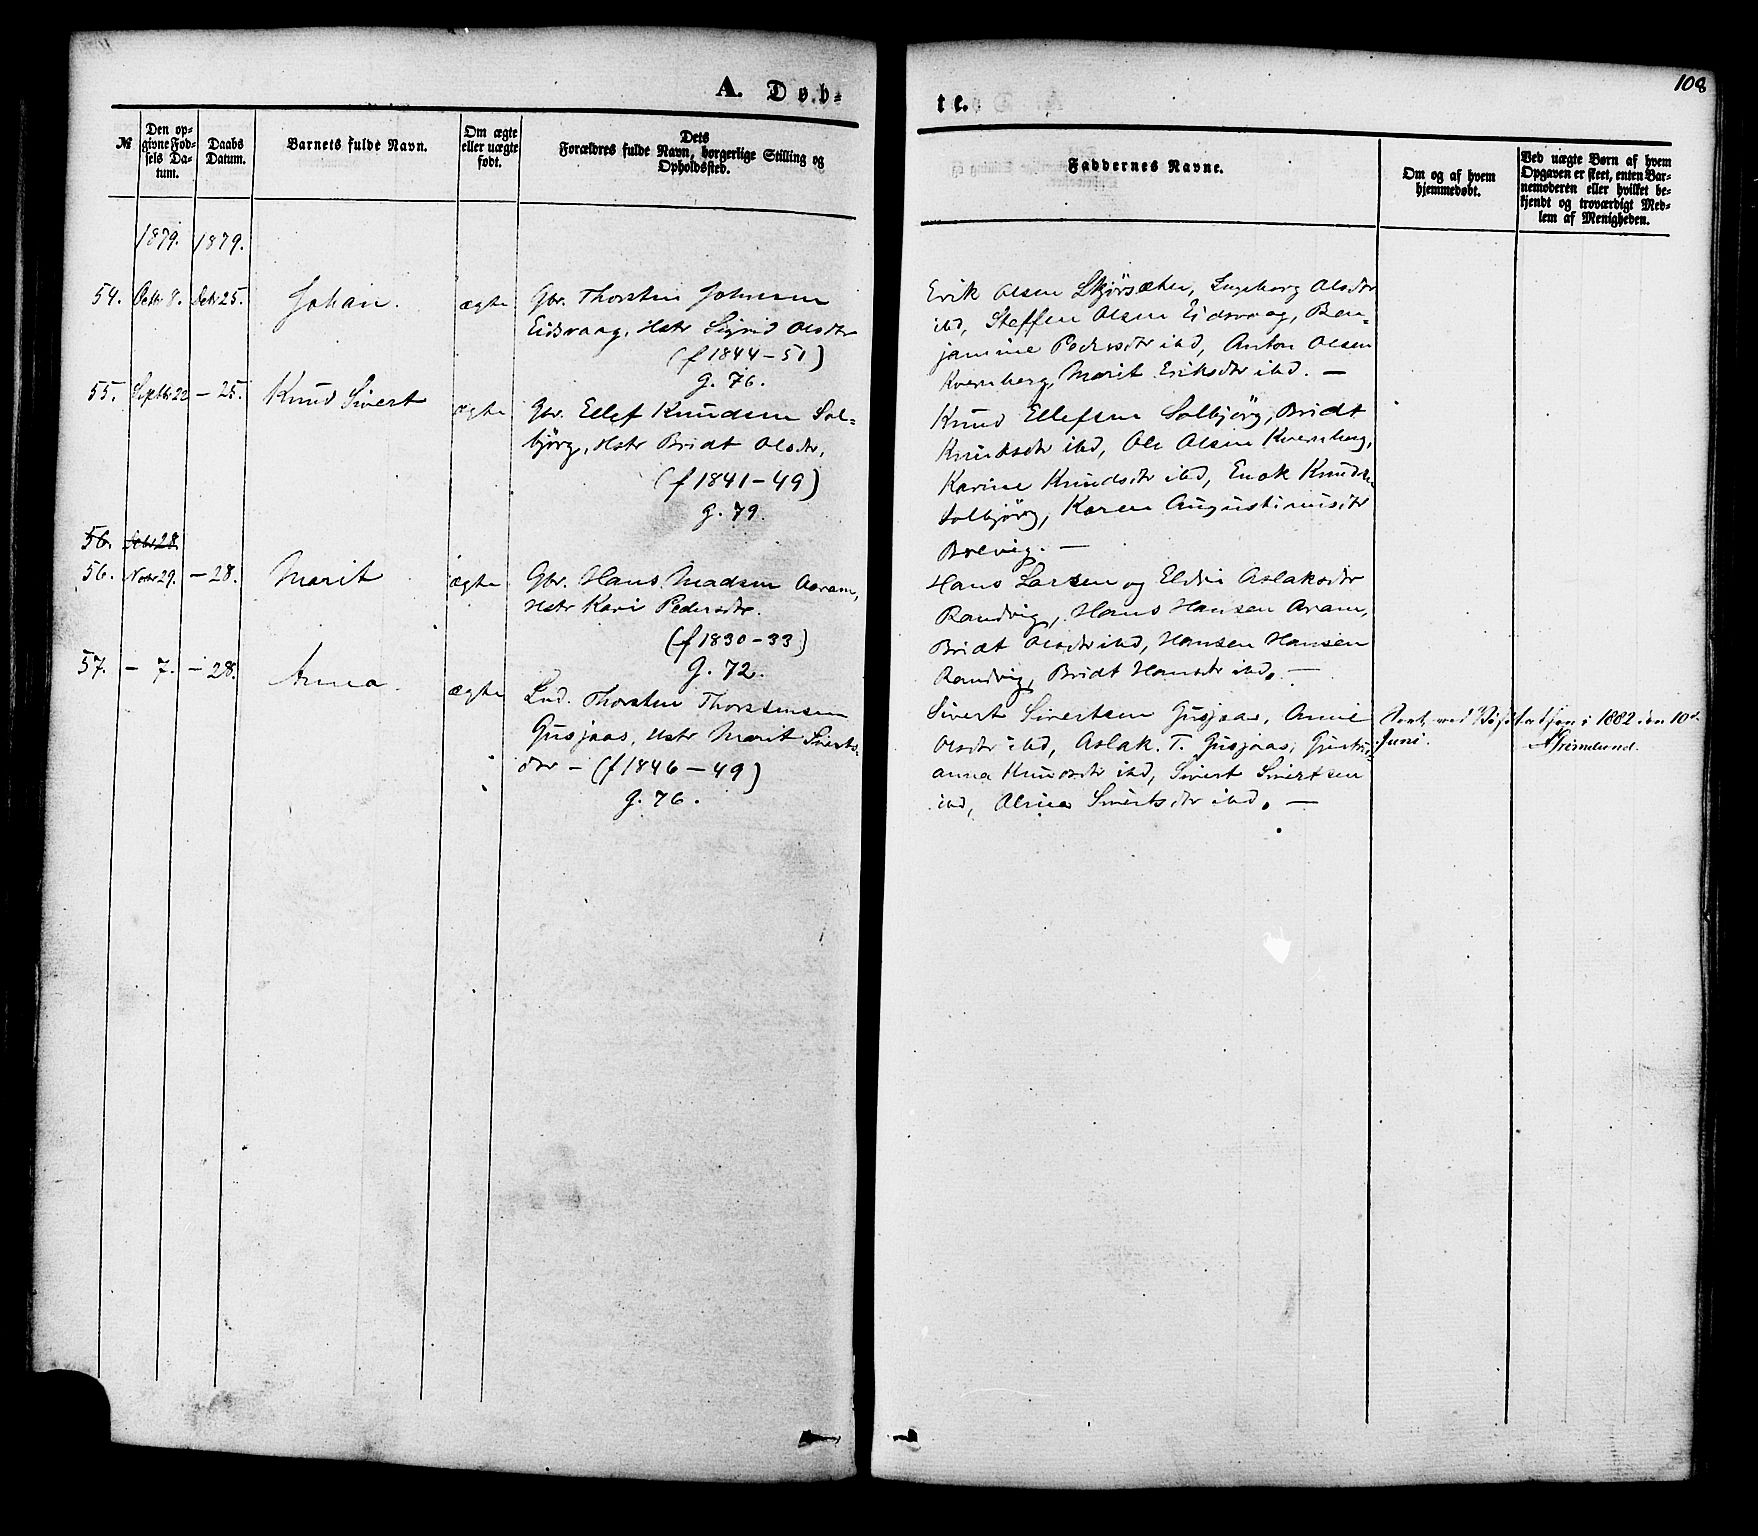 108
A. Døb-
te.
№
Den op-
givne Fød-
sels Da-
tum.
Daabs
Datum.
Barnets fulde Navn.
Om ægte
eller uægte
født.
Dets
Forældres fulde Navn, borgerlige Stilling og
Opholdssted.
Faddernes Navne.
Om og af hvem
hjemmedøbt.
Ved uægte Børn af hvem
Opgaven er skeet, enten Bar-
nemoderen eller hvilket be-
kjendt og troværdigt Med-
lem af Menigheden.
1879. 1879.
54. Octbr 8. Octbr 25. Johan. ægte Gbr. Thorsten Johnsen
Eidsvaag, Hstr Sigrid Olsdtr
(f 1844-51)
g. 76.
Erik Olsen Skjörsæter, Ingeborg Olsdtr
ibd, Steffen Olsen Eidsvaag, Ben-
jamine Pedersdtr ibd, Anton Olsen
Kvernberg, Marit Eriksdtr ibd. —
55. Septbr 22 — 25. Knud Sivert ægte Gbr. Ellef Knudsen Sol-
björg, Hstr Bridt Olsdtr,
(f 1841-49)
g. 79.
Knud Ellefsen Solbjörg, Bridt
Knudsdtr ibd, Ole Olsen Kvernberg,
Karine Knudsdtr ibd, Enok Knuds
Solbjörg, Karen Augustinusdtr
Brevig. —
56. Octbr 28.
56. Novbr 29. — 28. Marit ægte Gbr. Hans Madsen Aaram,
Hstr Kari Pedersdtr.
(f 1830-33)
g. 72.
Hans Larsen og Eldri Aslaksdtr
Randvig, Hans Hansen Aram,
Bridt Olsdtr ibd, Hansen Hansen
Randvig, Bridt Hansdtr ibd. —
57. — 7. — 28. Anna. ægte Lnd. Thorsten Thorstensen
Gusjaas, Hstr Marit Siverts-
dtr — (f 1846-49)
g. 76.
Sivert Sivertsen Gusjaas, Anne
Olsdtr ibd, Aslak. T. Gusjaas,
anna Knudsdtr ibd, Sivert Sivertsen
ibd, Olina Sivertsdtr ibd. —
ved i 1882 den 10de
Juni. Grimelund.